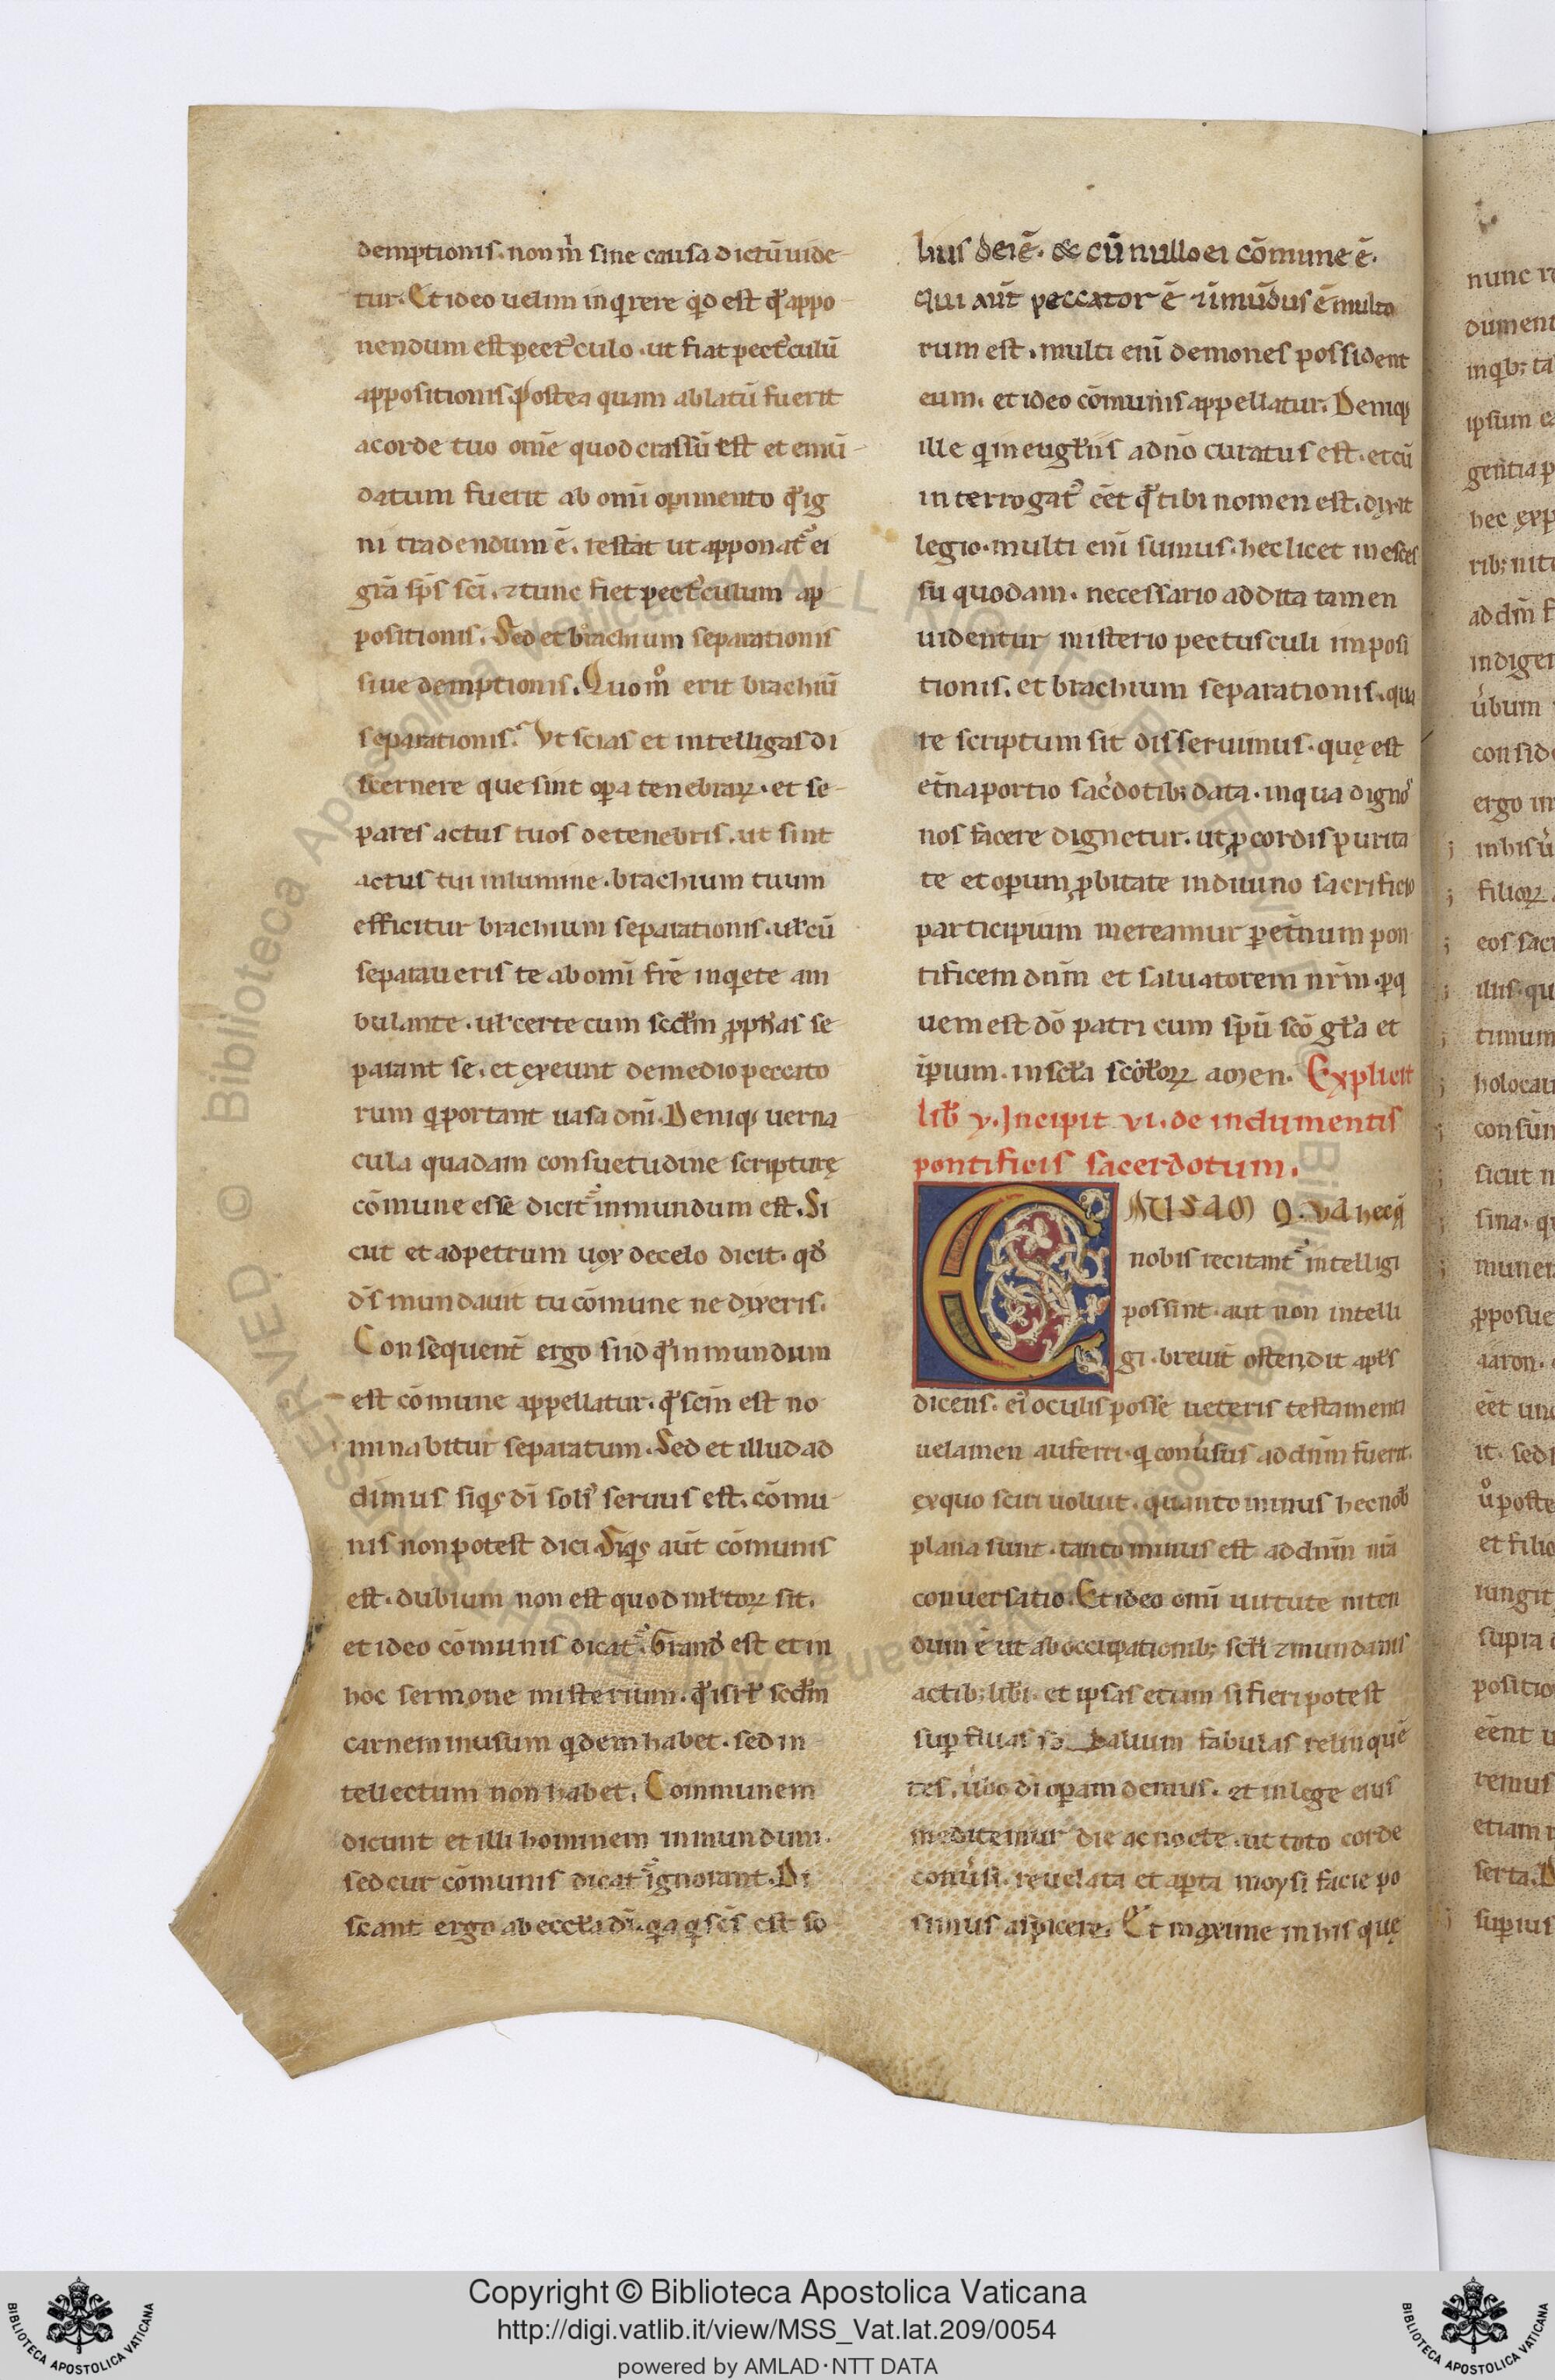 demptionis. non m̊ sine causa dictū uide-
tur. Et ideo uelim inqͥrere qͥd est qđ appo-
nendum est pectꝰculo. ut fiat pectꝰculū
appositionis. Postea quam ablatū fuerit
a corde tuo om̄e quod crassū est et emū-
datum fuerit ab omi oꝑimento qđ ig
ni tradendum ē. restat ut apponat᷑ ei
gr̄a sp̄s sc̄i. ⁊ tunc fiet pectꝰculum ap
positionis. Sed et brachium separationis
siue demptionis. Quom̊ erit brachiū
separationis? Vt scias et intelligas di
scernere que sint oꝑa tenebraꝝ. et se-
pares actus tuos de tenebris. ut sint
actus tui in lumine. brachium tuum
efficitur brachium separationis. uł cū
separaueris te ab omi fr̄e inqͥete am
bulante. uł certe cum scdm ꝓph̄as se
parant se. et exeunt de medio peccato
rum qͥ portant uasa dn̄i. Deniqꝫ uerna
cula quadam consuetudine scripturę
cōmune esse dicit᷑ inmundum est. Si
cut et ad petrum uox de celo dicit. qđ
d̄s mundauit tu cōmune ne dixeris.
Consequent̄ ergo siid qđ inmundum
est cōmune appellatur. qđ sc̄m est no
minabitur separatum. Sed et illud ad
dimus siqͥs dī soliꝰ seruus est. cōmu-
nis non potest dici. Siqͥs aut̄ cōmunis
est. dubium non est quod multoꝝ sit.
et ideo cōmunis dicat᷑. Grand̄ est et in
hoc sermone misterium. qđ isrł scdm
carnem in usum qͥdem habet. sed in-
tellectum non habet. Communem
dicunt et illi hominem inmundum.
sed cur cōmunis dicat᷑ ignorant. Di
scant ergo ab eccła dī. qͥa qͥ sc̄s est so
lius dei ē. & cū nullo ei cōmune ē.
qui aut̄ peccator ē ⁊ īmūdus ē multo
rum est. multi enī demones possident
eum. et ideo cōmunis appellatur. Deniqꝫ
ille qͥ in eugłiis a dn̄o curatus est. et cū
interrogatꝰ eēt qđ tibi nomen est. dixit
legio. multi enī sumus. hec licet in esces
su quodam. necessario addita tamen
uidentur misterio pectusculi imposi
tionis. et brachium separationis. qua
re scriptum sit disseruimus. quę est
et̄na portio sac̄dotibꝫ data. in qua dignoˢ
nos facere dignetur. ut ꝓ cordis purita
te et oꝑum ꝓbitate in diuino sacrificio
participium mereamur ꝑ et̄num pon
tificem dn̄m et saluatorem nr̄m. ꝑ q
uem est dō patri cum sp̄u scō głia et
īꝑium. in scła scłoꝝ amen. Explicit
lib̄ v. Incipit vi. de indumentis
pontificis sacerdotum.
CAUSAM Q. Va hec q̄
nobis recitant᷑ intelligi
possint. aut non intelli
gi. breuit̄ ostendit apłs
dicens. ei oculis posse ueteris testamenti
uelamen auferri. qͥ conuersus ad dn̄m fuerit.
ex quo sciri uoluit. quanto minus hec nob̄
plana sunt. tanto minus est ad dn̄m nr̄a
conuersatio. Et ideo omi uirtute niten
dum ē ut ab occupationibꝫ scłi ⁊ mundanis
actibꝫ lib̄i. et ipsas etiam si fieri potest
suꝑfluas sodalium fabulas relinquē
tes. ub̄o dī oꝑam demus. et in lege eius
meditemur die ac nocte. ut toto corde
conu̓si. reuelata et aꝑta moysi facie po
simus aspicere. Et maxime in his quę
nunc re
dument
in qͥbꝫ ta
ipsum e
gentia p
hec exp
ribꝫ nit
ad dn̄m f
indiger
u̓bum
conside
ergo in
in his u̓
filioꝝ
eos sac
illis. qu
tunum
holocau
consūm
sicut n
sina. q
muner
ꝓposue
aaron.
eēt un
it. sed
u̓o poste
et filio
iungit
supra
positio
eēnt u
remus
etiam
serta. D
suꝑius
Copyright © Biblioteca Apostolica Vaticana
http://digi.vatlib.it/view/MSS_Vat.lat.209/0054
powered by AMLAD·NTT DATA
BIBLIOTECA APOSTOLICA VATICANA
BIBLIOTECA APOSTOLICA VATICANA